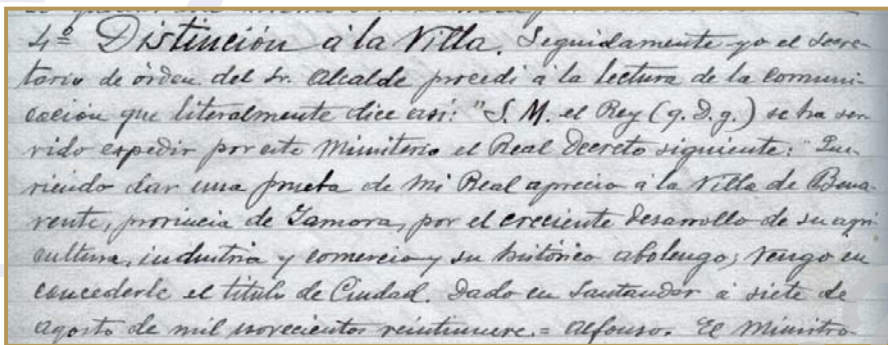 4º Distinción á la Villa. Seguidamente yo el secre-
tario de órden del Sr. Alcalde procedi á la lectura de la comuni-
cación que literalmente dice asi: "S. M. el Rey (q. D. g.) se ha ser
vido expedir por este Ministerio el Real Decreto siguiente: "Que-
riendo dar una prueba de mi Real aprecio á la Villa de Bena-
vente, provincia de Zamora, por el creciente desarrollo de su agri
cultura, industria y comercio y su histórico abolengo; Vengo en
concederle el titulo de Ciudad. Dado en Santander á siete de
agosto de mil novecientos veintinueve. = Alfonso. El Ministro